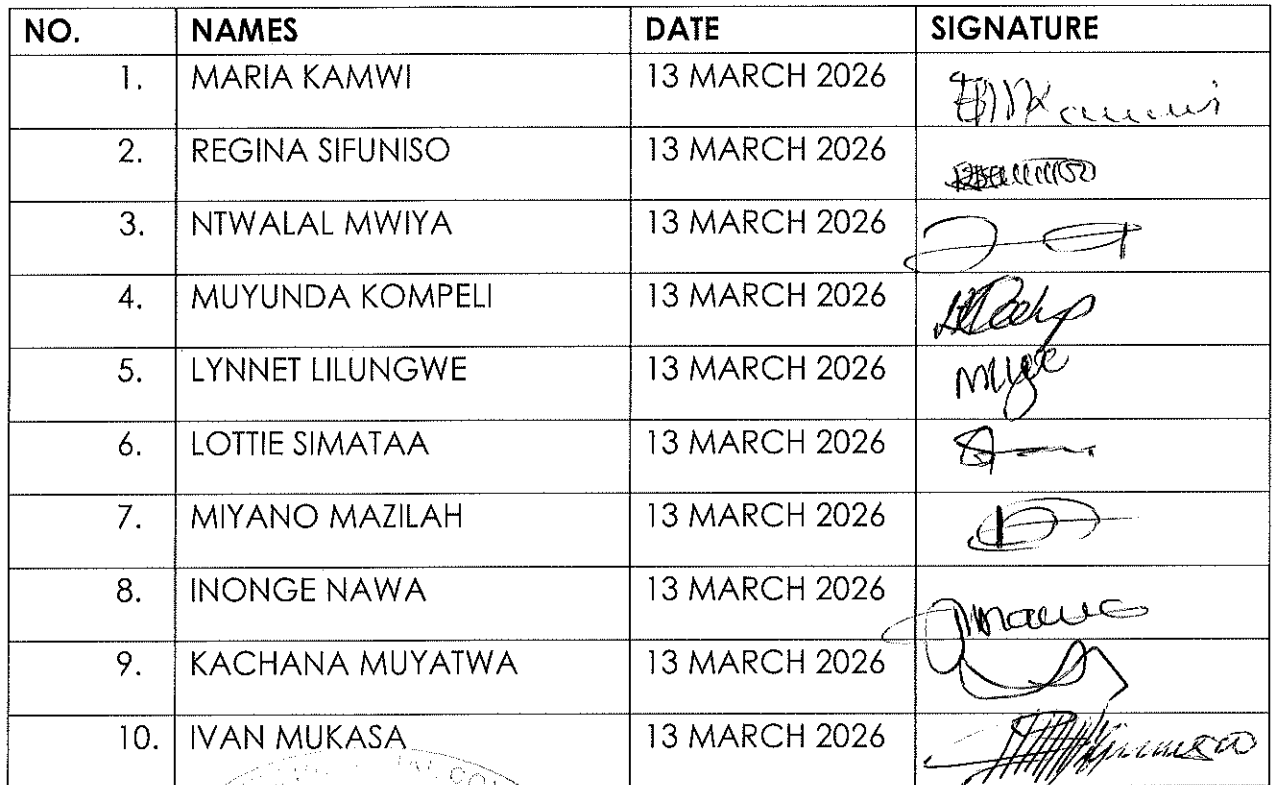 NO. NAMES DATE SIGNATURE
1. MARIA KAMWI 13 MARCH 2026
2. REGINA SIFUNISO 13 MARCH 2026
3. NTWALAL MWIYA 13 MARCH 2026
4. MUYUNDA KOMPELI 13 MARCH 2026
5. LYNNET LILUNGWE 13 MARCH 2026
6. LOTTIE SIMATAA 13 MARCH 2026
7. MIYANO MAZILAH 13 MARCH 2026
8. INONGE NAWA 13 MARCH 2026
9. KACHANA MUYATWA 13 MARCH 2026
10. IVAN MUKASA 13 MARCH 2026